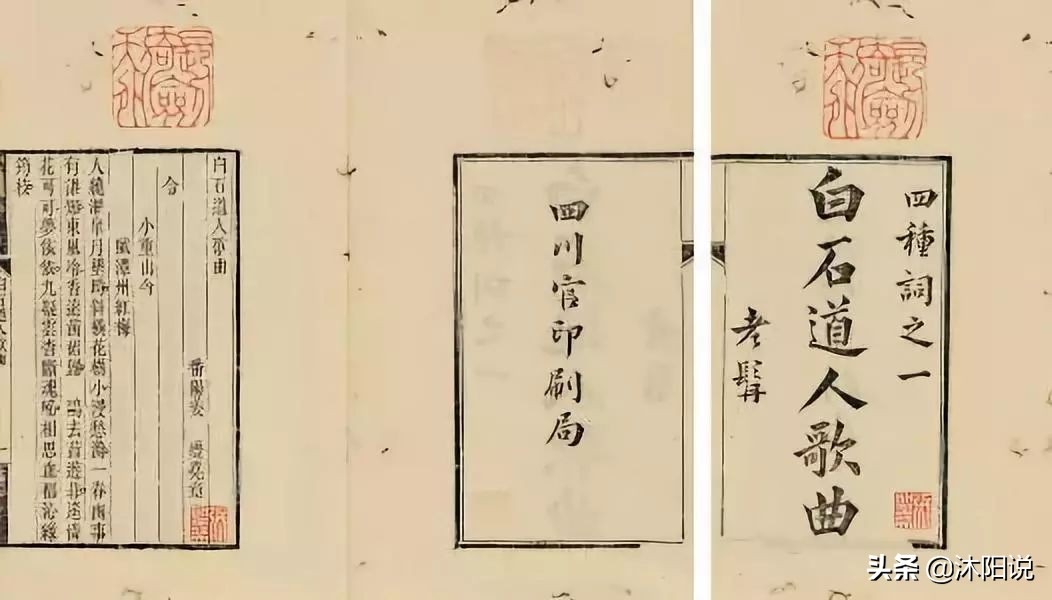 四種詞之一
白石道人歌曲
老髯
四川官印刷局
白石道人歌曲
番陽姜 夔堯章
令
小重山令
賦潭州紅梅
人繞湘皋月墜時斜橫花樹小浸愁漪一春幽事
有誰知東風冷香遠茜裙歸 鷗去昔遊非遙憐
花可可夢依依九疑雲杳斷魂啼相思血都沁綠
筠枝
头条 @沐阳说